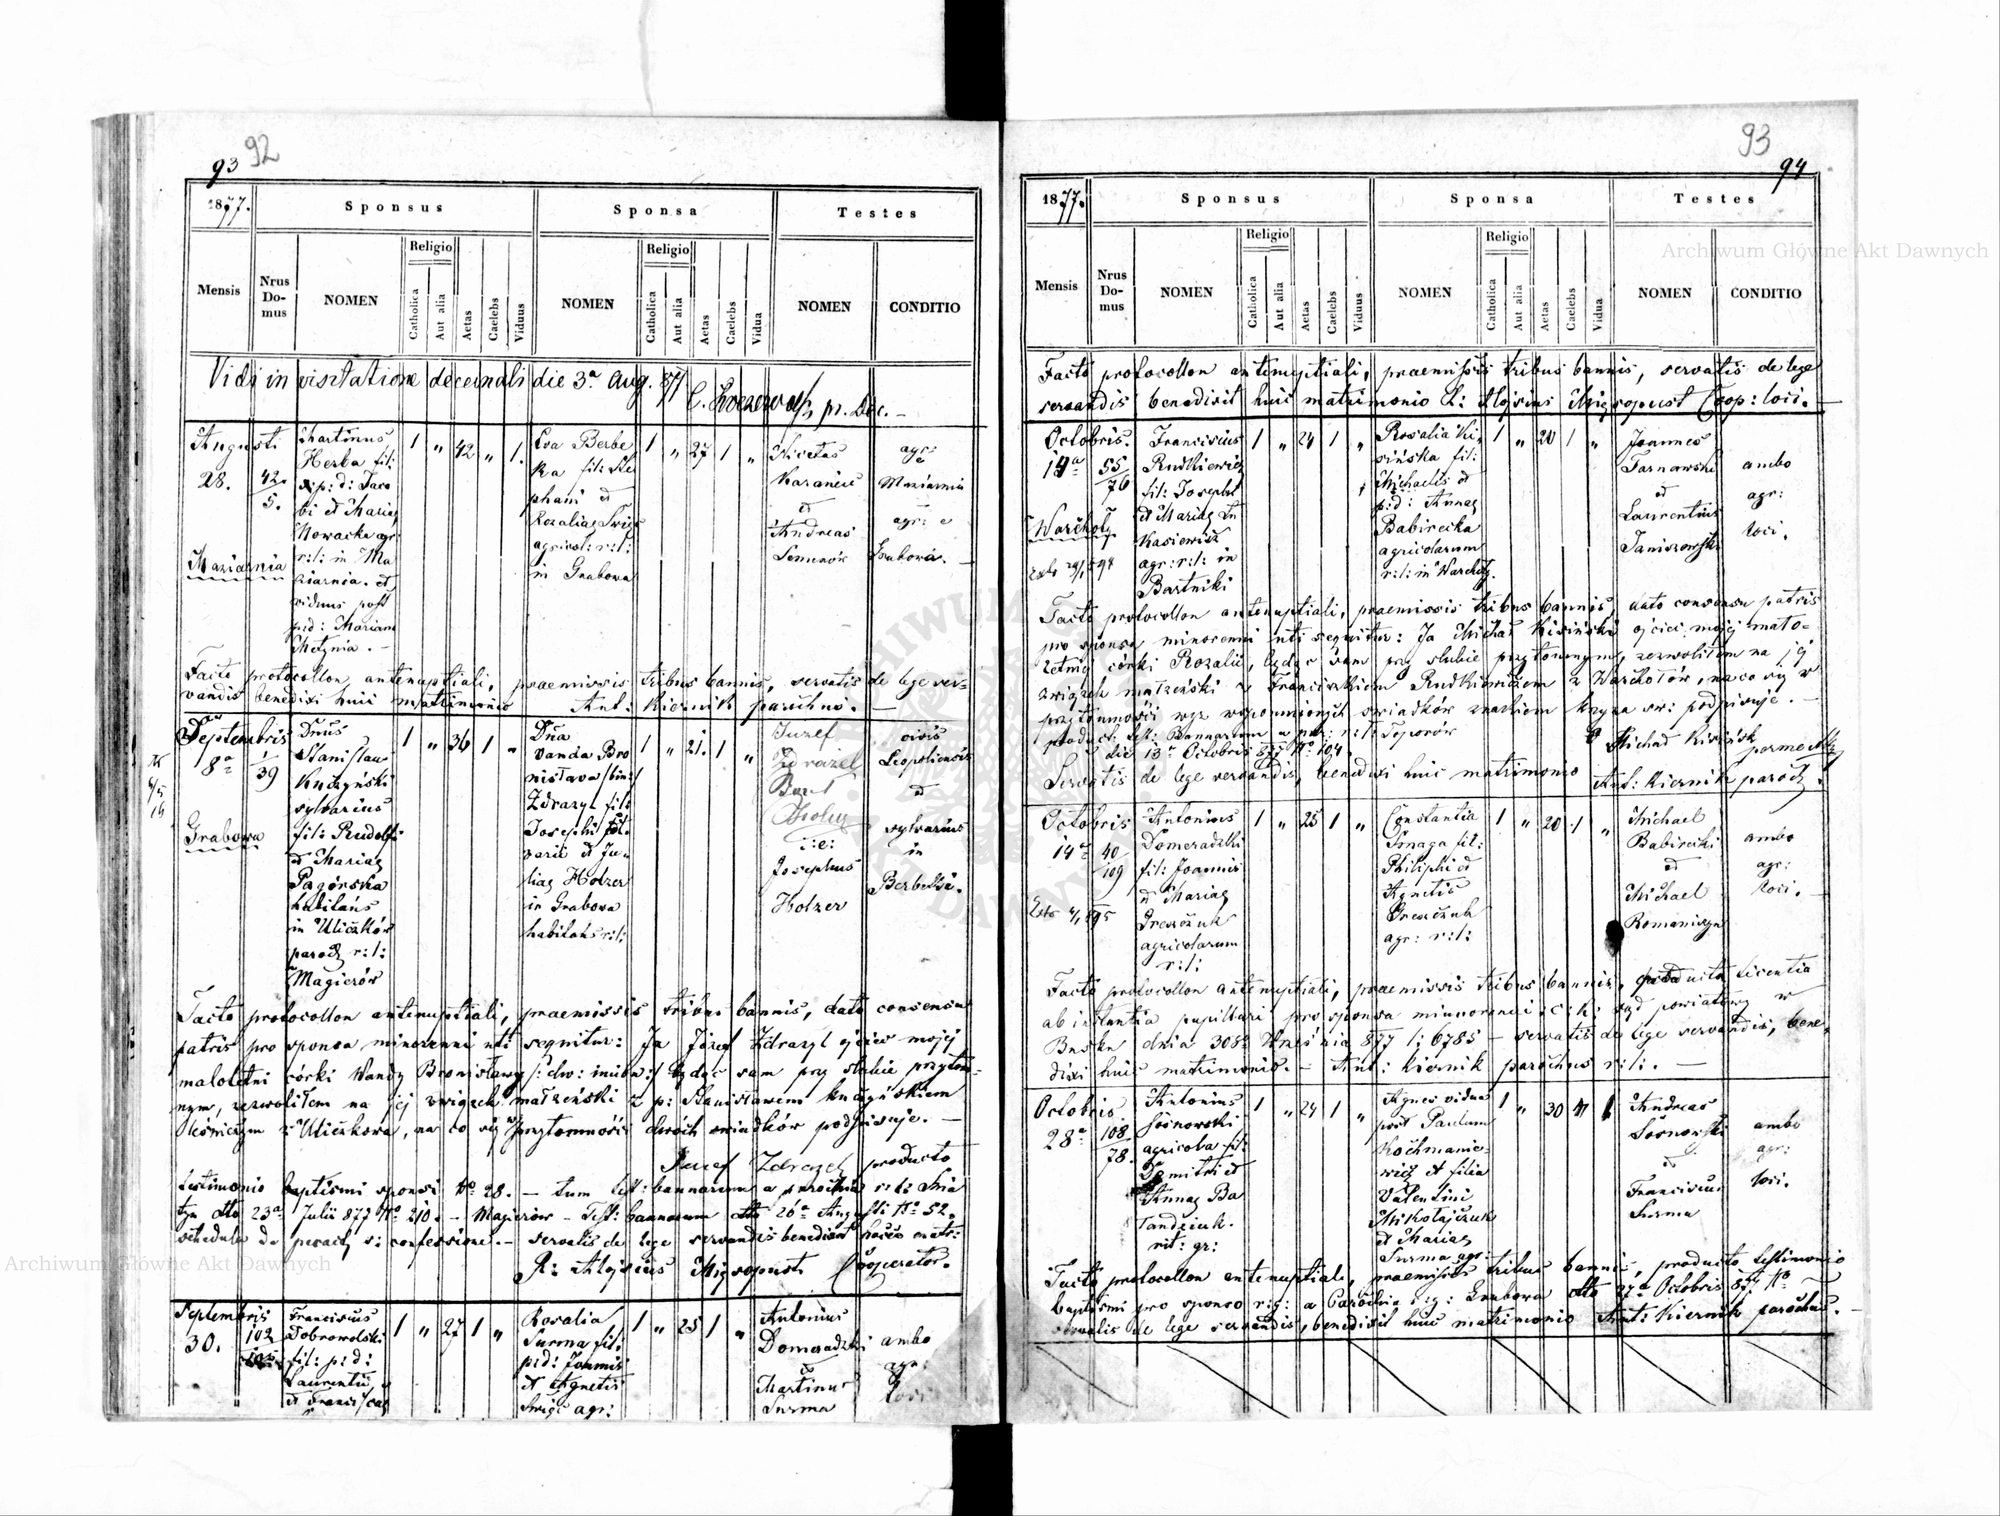 93 92
1877.
Sponsus
Sponsa
Testes
Mensis
Nrus Do- mus
NOMEN
Religio
Catholica
Aut alia
Aetas
Caelebs
Viduus
NOMEN
Religio
Catholica
Aut alia
Aetas
Caelebs
Vidua
NOMEN
CONDITIO
Vidi in visitatione decennali die 3ª Aug. 877
pr. Dec. -
Augusti
28.
42.
5.
Maziarnia
Martinus
Herba fil:
p: d: Jaco
bi et Mariae
Nowacka agr
r: l: in Ma
ziarnia. et
viduus post
p: d: Mariam
1 " 42 " 1.
Eva Berbe
ka fil: Ste
phani et
Rozaliae
agricol: r: l:
in Grabowa
1 " 27 1 "
Nicetas
et
Andreas
agr:
Maziarnia
agr: e
Grabowa. -
Facto protocollon antenuptiali, praemissis tribus bannis, servatis de lege ser-
vandis benedixi huic matrimonio Ant: Kiernik parochus. -
Septembris
8ª
1
39
Grabowa
Dnus
Stanislaus
Kuczyński
sylvarius
fil: Rudolfi
et Mariae
Pagórska
habitans
in Uliczków
paroch r: l:
Magierów
1 " 36 1 "
Dña
Vanda Bro
nislava /: bin :/
Zdrazyl fil:
Josephi
varii et Ju-
liae Holzer
in Grabowa
habitans r: l:
1 " 21. 1 "
Juzef
Zdrazel
i: e:
Josephus
Holzer
civis
Leopoliensis
et
sylvarius
in
Facto protocollon antenuptiali, praemissis tribus bannis, dato consensu
patris pro sponsa minorenni uti sequitur: Ja Józef Zdrazyl ojciec mojej
małoletni córki Wandy Bronisławy /: dw: imion :/ będąc sam przy ślubie przytom-
nym, zezwoliłem na jej związek małżeński z p: Stanisławem Kuczyńskiem
leśniczym z Uliczkowa, na co się w przytomności dwóch świadków podpisuje. -
Juzef Zdrazel producto
testimonio baptismi sponsi Nº 28. - tum test: bannorum a parochia r: l:
dtto 23ª Julii 877 Nº 210. - Magierów - Test: bannorum dtto 26ª Augusti Nº 52.
schedula de peracta s: confessione. - servatis de lege servandis benedixit hocce matr:
R: Aloisius Cooperator.
Septembris
30.
102
Franciscus
Dobrowolski
fil: p: d:
Laurentii
et Francis/cae
1 " 27 1 "
Rosalia
Surma fil:
p: d: Joannis
et Agnetis
agr:
1 " 25 1 "
Antonius
Domaradzki
et
Martinus
Surma
ambo
agr:
loci
93
94
1877.
Sponsus
Sponsa
Testes
Mensis
Nrus Do- mus
NOMEN
Religio
Catholica
Aut alia
Aetas
Caelebs
Viduus
NOMEN
Religio
Catholica
Aut alia
Aetas
Caelebs
Vidua
NOMEN
CONDITIO
Facto protocollon antenuptiali, praemissis tribus bannis, servatis de lege
servandis benedixit huic matrimonio R: Alojsius Coop: loci. -
Octobris.
14ª
55
76
Warchoły
Franciscus
Rudkiewicz
fil: Josephi
et Mariae Łu
kasiewicz
agr: r: l: in
Bartniki
1 " 24 1 "
Rosalia Ki-
sińska fil:
Michaelis et
p: d: Annae
Babirecka
agricolarum
r: l: in Warchoły.
1 " 20 1 "
Joannes
Tarnawski
et
Laurentius
Janiszewski
ambo
agr:
loci.
Facto protocollon antenuptiali, praemissis tribus bannis, dato consensu patris
pro sponsa minorenni uti sequitur: Ja Michał Kisiński ojciec mojej mało-
letniej córki Rozalii, będąc sam przy ślubie przytomnym, zezwoliłem na jej
związek małżeński z Franciszkiem Rudkiewiczem z Warchołów, na co się w
przytomności wyz wspomnionych świadków znakiem krzyża sw: podpisuje. -
product: test: Bannorum a par: r: l: Toporów
die 13ª Octobris 877 Nº 104.
Michał Kisiński
Servatis de lege servandis, benedixi huic matrimonio Ant: Kiernik paroch.
Octobris
14ª
40
109
Antonius
Domaradzki
fil: Joannis
et Mariae
agricolarum
r: l:
1 " 25 1 "
Constantia
Smaga fil:
Philippi et
Agnetis
agr: r: l:
1 " 20 1 "
Michael
Babirecki
et
Michael
Romaniszyn
ambo
agr:
loci. -
Facto protocollon antenuptiali, praemissis tribus bannis, producta licentia
ab instantia pupillari pro sponsa minorenni: C: k: sąd powiatowy w
Busku dnia Września 877 l: 6785 - servatis de lege servandis, bene-
dixi huic matrimonio. - Ant: Kiernik parochus r: l: . -
Octobris
28ª
108
78.
Antonius
Sosnowski
agricola fil:
Dymitri et
Annae Ba
landziuk.
rit: gr:
1 " 24 1 "
Agnes vidua
post Paulum
Kochmanie-
wicz et filia
Valentini
Mikołajczuk
et Mariae
Surma agr:
1 " 30 " 1
Andreas
Sosnowski
et
Franciscus
Surma
ambo
agr:
loci.
Facto protocollon antenuptiali, praemissis tribus bannis, producto testimonio
baptismi pro sponso r: g: a Parochia r: g: Grabowa dtto 27ª Octobris 877 Nº
servatis de lege servandis, benedixit huic matrimonio Ant: Kiernik parochus. -
Archiwum Główne Akt Dawnych
Archiwum Główne Akt Dawnych